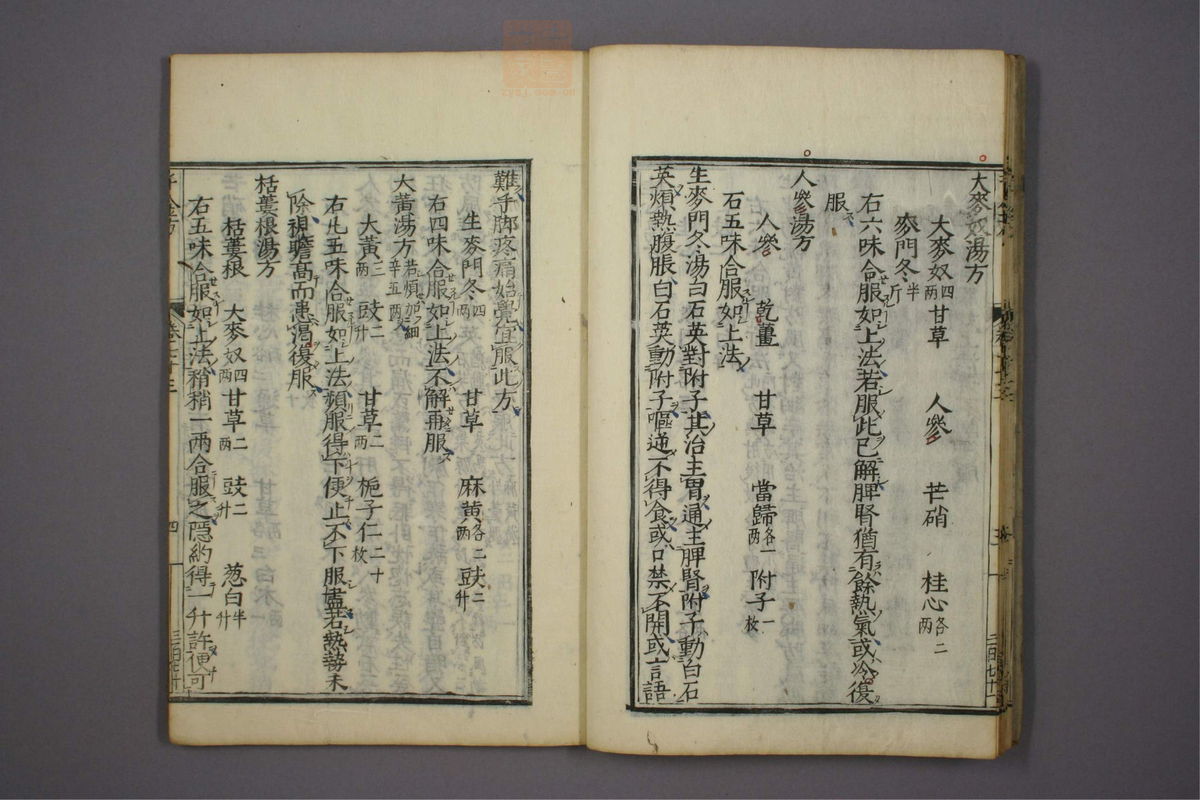 大麥奴湯方
大麥奴四两 甘草 人參 芒硝 桂心各二两
麥門冬半斤
右六味合服如上法若服此已解脾腎猶有餘熱氣或冷復
服
人參湯方
人參 乾薑 甘草 當歸各一两 附子一枚
右五味合服如上法
生麥門冬湯白石英對附子其治主胃通主脾腎附子動白石
英煩熱腹脹白石英動附子嘔逆不得食或口禁不開或言語
難手脚疼痛始覺宜服此方
生麥門冬四两 甘草 麻黄各二两 豉二升
右四味合服如上法不解再服
大黄湯方若煩加細辛五两
大黄三两 豉二升 甘草二两 梔子仁二十枚
右此五味合服如上法頻服得下便止不下服盡若熱勢未
除視瞻高而患渴復服
栝蔞根湯方
栝蔞根 大麥奴四两 甘草二两 豉二升 葱白半升
右五味合服如上法稍稍一两合服之隱約得一升許便可
卷二十三
四